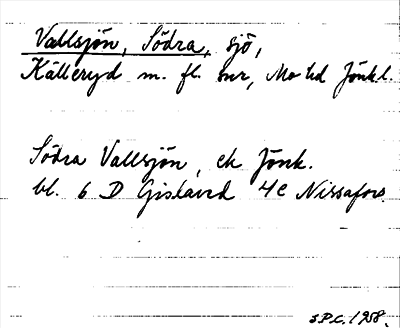 Vallsjön, Södra, sjö,
Källeryd m. fl. snr, Mo hd Jönk l.
Södra Vallsjön, ek Jönk.
bl. 6 D Gislaved 4c Nissafors
S.P.C. 1958.